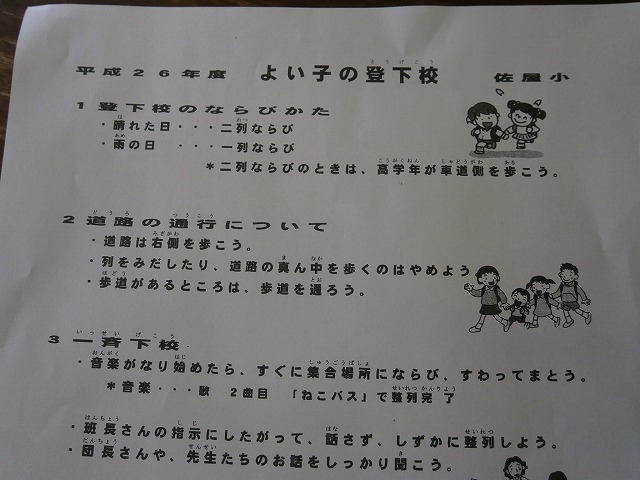 平成26年度　よい子の登下校　佐屋小
1 登下校のならびかた
・晴れた日・・・二列ならび
・雨の日　・・・一列ならび
＊二列ならびのときは、高学年が車道側を歩こう。
2 道路の通行について
・道路は右側を歩こう。
・列をみだしたり、道路の真ん中を歩くのはやめよう
・歩道があるところは、歩道を通ろう。
3 一斉下校
・音楽がなり始めたら、すぐに集合場所にならび、すわってまとう。
＊音楽・・・歌　2曲目　「ねこバス」で整列完了
・班長さんの指示にしたがって、話さず、しずかに整列しよう。
・団長さんや、先生たちのお話をしっかり聞こう。